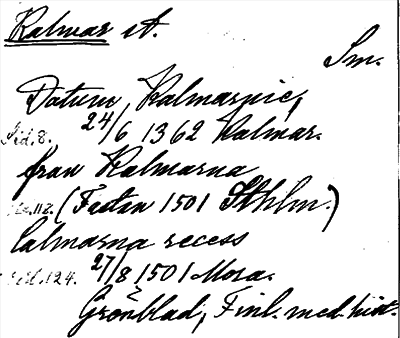 Kalmar st.
Sm.
Datum Kalmarnie,
Sid. 8. 24/6 1362 Kalmar.
fran Kalmarna
Sid. 112. (Fastan 1501 Sthlm.)
Calmarna recess
Sid. 124. 27/8 1501 Mora.
Grönblad, Finl. med. hist.